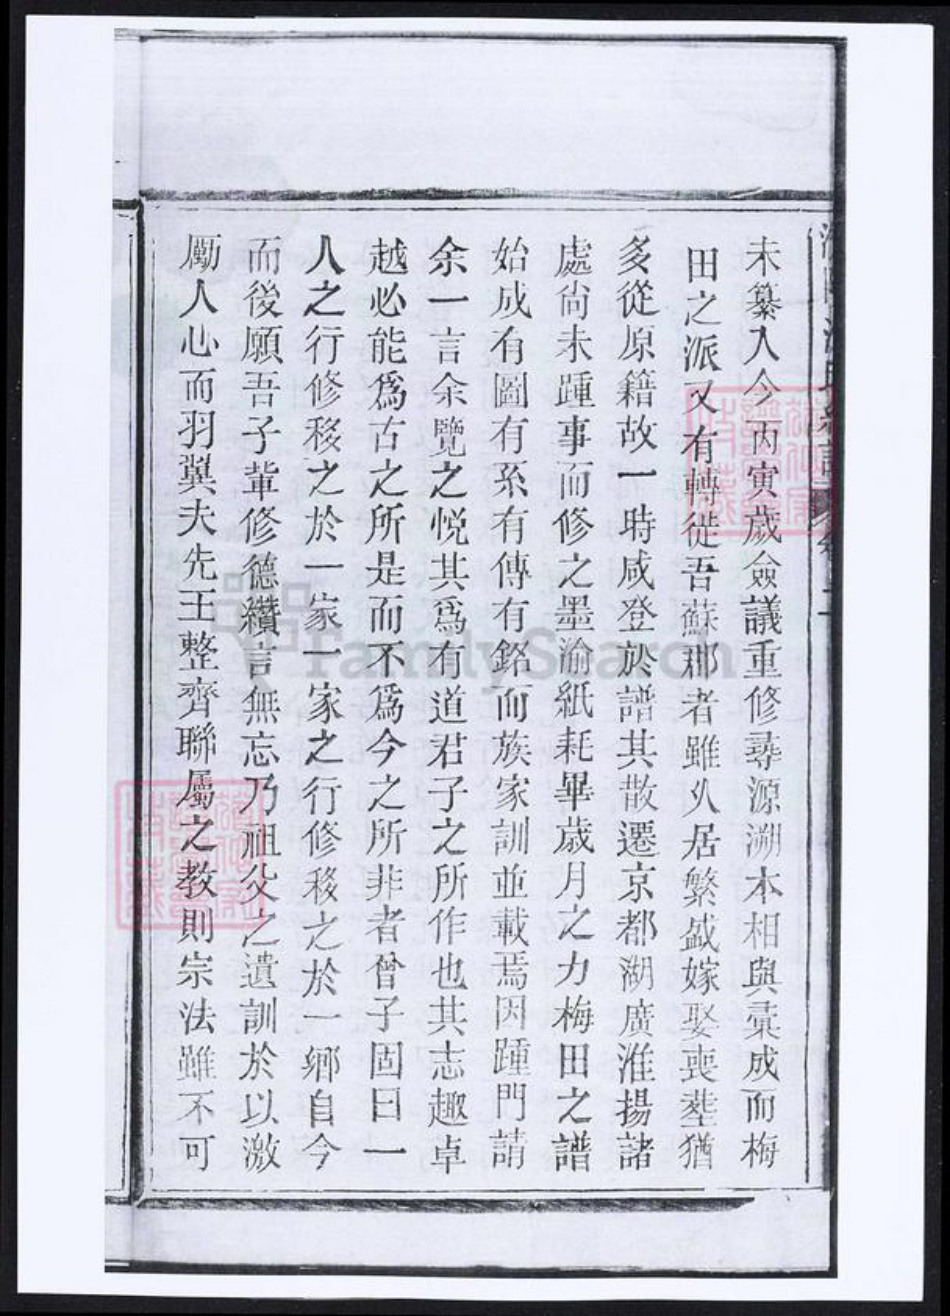 未纂入今丙寅歲僉議重修尋源溯本相與彙成而梅
田之派又有轉徙吾蘇郡者雖久居繁盛嫁娶喪塟猶
多從原籍故一時咸登於譜其散遷京都湖廣淮揚諸
處尙未踵事而修之墨渝紙耗畢歲月之力梅田之譜
始成有圖有系有傳有銘而族家訓並載焉因踵門請
余一言余覽之悅其爲有道君子之所作也其志趣卓
越必能爲古之所是而不爲今之所非者曾子固曰一
人之行修移之於一家一家之行修移之於一鄉自今
而後願吾子軰修德纘言無忘乃祖父之遺訓於以激
勵人心而羽翼夫先王整齊聯屬之教則宗法雖不可
FamilySearch